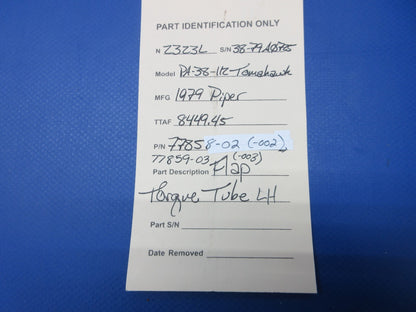 PART IDENTIFICATION ONLY
N 2323L S/N 38-79A0785
Model PA-38-112 Tomahawk
MFG 1979 Piper
TTAF 8449.45
P/N 77858-02 (-002)
77859-03 (-003)
Part Description Flap
Torque Tube LH
Part S/N
Date Removed